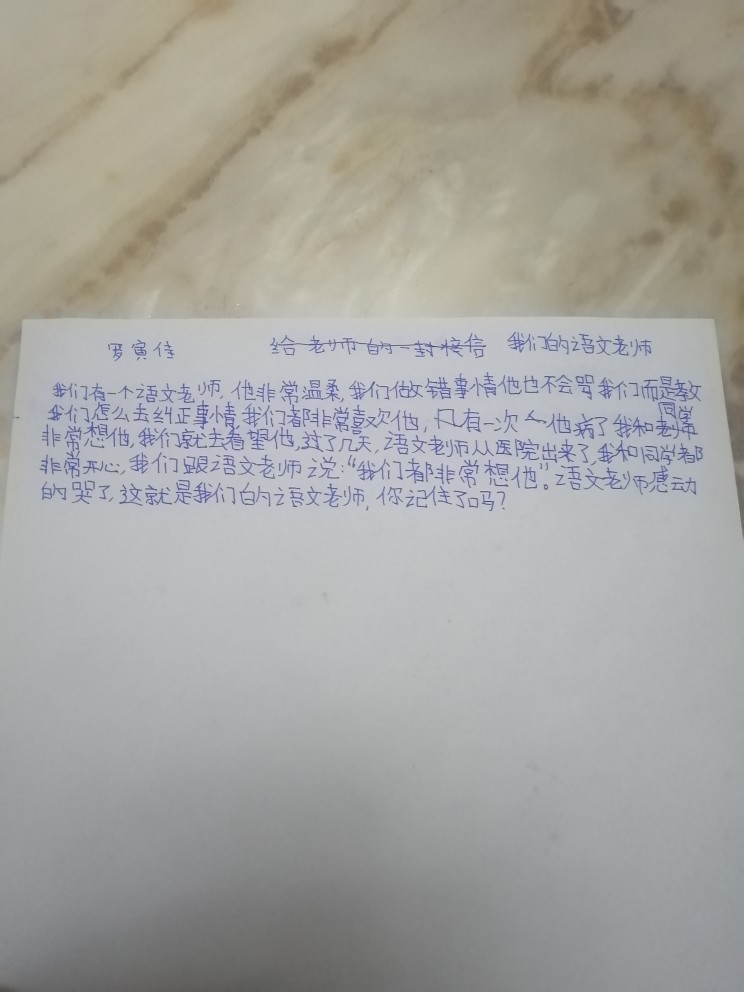 罗寅佳 给老师的一封信 我们的语文老师
我们有一个语文老师,他非常温柔,我们做错事情他也不会骂我们而是教
我们怎么去纠正事情,我们都非常喜欢他,只有一次他病了我和同学
非常想他,我们就去看望他,过了几天,语文老师从医院出来了,我和同学都
非常开心,我们跟语文老师说:“我们都非常想他”。语文老师感动
的哭了,这就是我们的语文老师,你记住了吗?